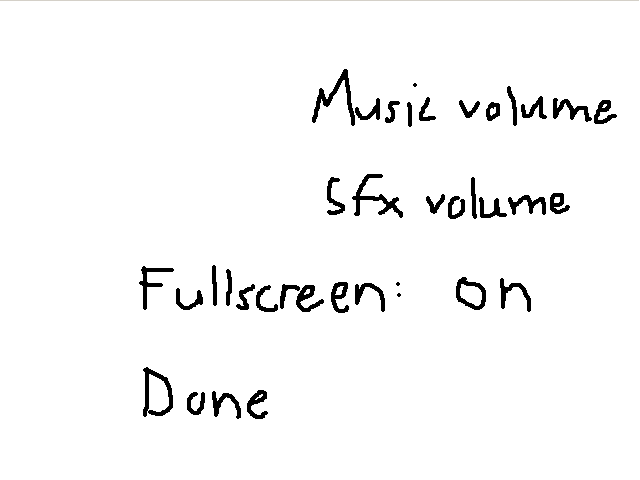 Music volume
Sfx volume
Fullscreen: on
Done